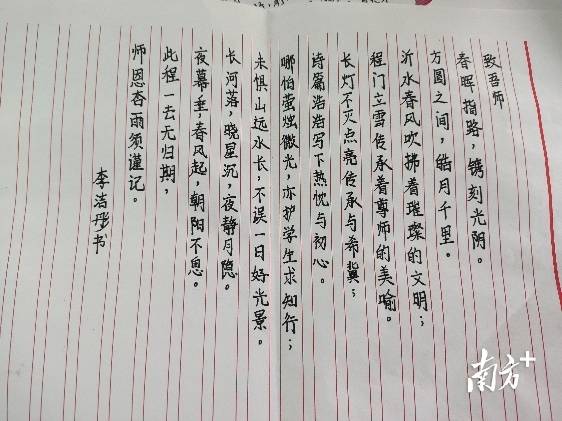 致吾师
春晖指路，镌刻光阴。
方圆之间，皓月千里。
沂水春风吹拂着璀璨的文明；
程门立雪传承着尊师的美喻。
长灯不灭点亮传承与希冀；
诗篇浩浩写下热忱与初心。
哪怕萤烛微光，亦护学生求知行；
未惧山远水长，不误一日好光景。
长河落，晓星沉，夜静月隐。
夜幕垂，春风起，朝阳不息。
此程一去无归期，
师恩杏雨须谨记。
李洁彤书
南方+